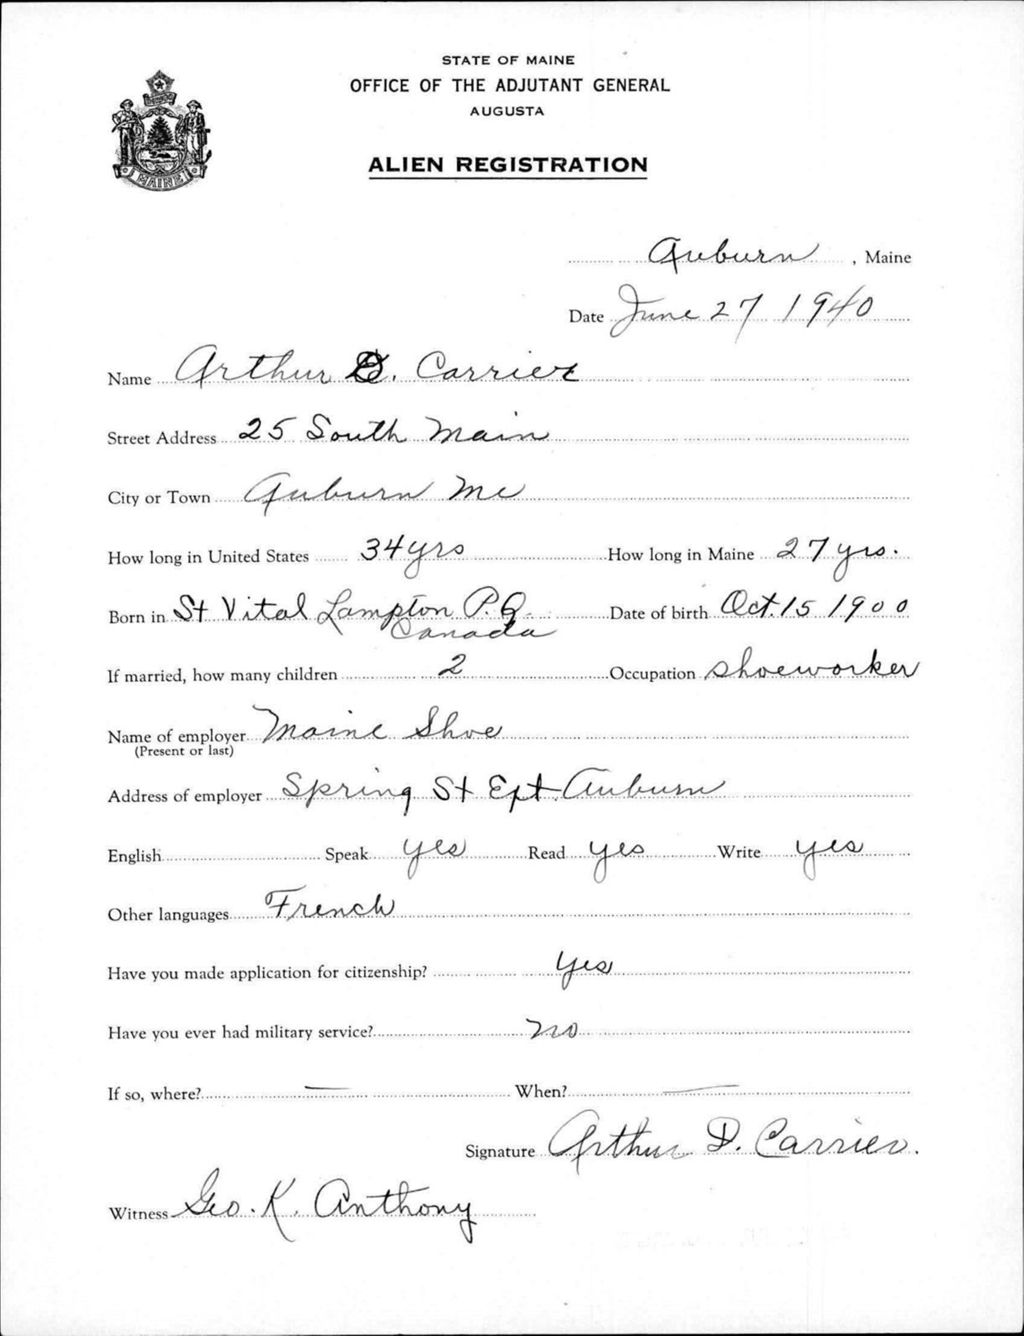 STATE OF MAINE
OFFICE OF THE ADJUTANT GENERAL
AUGUSTA
MAINE
ALIEN REGISTRATION
Auburn, Maine
Date June 27 1940
Name Arthur D. Carrier
Street Address 25 South Main
City or Town Auburn Me
How long in United States 34 yrs How long in Maine 27 yrs.
Born in St Vital Lampton P.Q. Date of birth Oct. 15 1900
Canada
If married, how many children 2 Occupation shoeworker
Name of employer Maine Shoe
(Present or last)
Address of employer Spring St Ext. Auburn
English Speak yes Read yes Write yes
Other languages French
Have you made application for citizenship? Yes
Have you ever had military service? no
If so, where? — When? —
Signature Arthur D. Carrier.
Witness Geo. K. Anthony